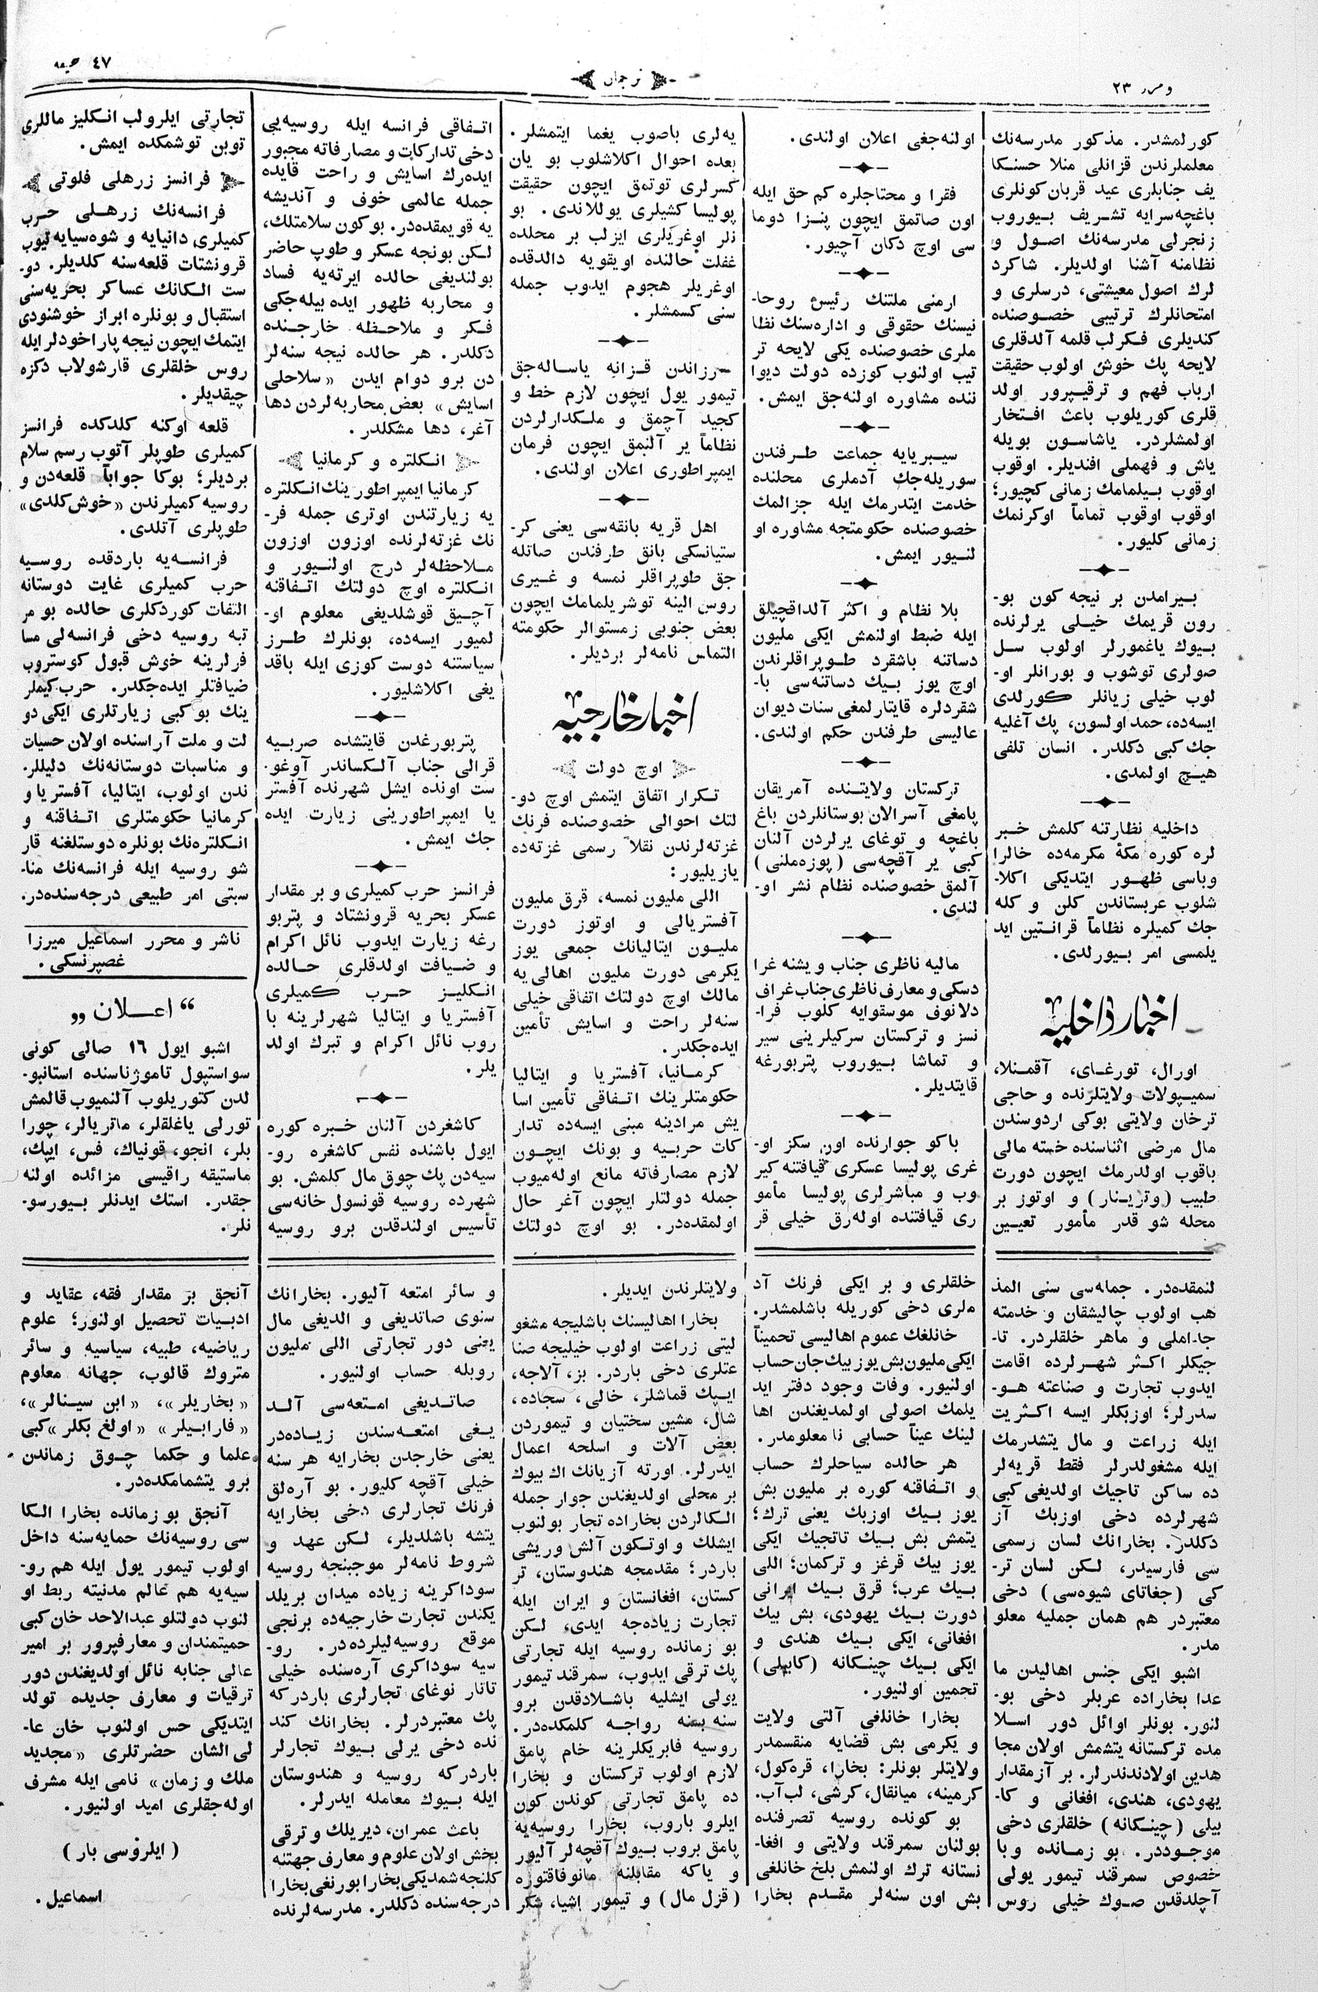 ترجمان
٤٧
٢٣
كورلمشدر. مذكور مدرسه‌نك
معلملرندن قزانلى منلا حسنكا
يف جنابلرى عيد قربان كونلرى
باغچه‌سرايه تشريف بيوروب
زنجرلى مدرسه‌نك اصول و
نظامنه آشنا اولديلر. شاكرد
لرك اصول معيشتى، درسلرى و
امتحانلرك ترتيبى خصوصنده
كنديلرى فكرلب قلمه آلدقلرى
لايحه پك خوش اولوب حقيقت
ارباب فهم و ترقيپرور اولد
قلرى كوريلوب باعث افتخار
اولمشلردر. ياشاسون بويله
ياش و فهملى افنديلر. اوقوب
اوقوب بيلمامك زمانى كچيور؛
اوقوب اوقوب تماماً اوكرنمك
زمانى كليور.
بيرامدن بر نيجه كون بو-
رون قريمك خيلى يرلرنده
بيوك ياغمورلر اولوب سل
صولرى توشوب و بورانلر او-
لوب خيلى زيانلر كورلدى
ايسه‌ده، حمد اولسون، پك آغليه
جك كبى دكلدر. انسان تلفى
هيچ اولمدى.
داخليه نظارتنه كلمش خبر
لره كوره مكهٔ مكرمه‌ده خالرا
وباسى ظهور ايتديكى اكلا-
شلوب عربستاندن كلن و كله
جك كميلره نظاماً قرانتين ايد
يلمسى امر بيورلدى.
اخبار داخليه
اورال، تورغاى، آقمنلا،
سميپولات ولايتلرنده و حاجى
ترخان ولايتى بوكى اردوسندن
مال مرضى اثناسنده خسته مالى
باقوب اولدرمك ايچون دورت
طبيب (وترينار) و اوتوز بر
محله شو قدر مأمور تعيين
اولنه‌جغى اعلان اولندى.
فقرا و محتاجلره كم حق ايله
اون صاتمق ايچون پنزا دوما
سى اوچ دكان آچيور.
ارمنى ملتنك رئيس روحا-
نيسنك حقوقى و اداره‌سنك نظا
ملرى خصوصنده يكى لايحه تر
تيب اولنوب كوزده دولت ديوا
ننده مشاوره اولنه‌جق ايمش.
سيبريايه جماعت طرفندن
سوريله‌جك آدملرى محلنده
خدمت ايتدرمك ايله جزالمك
خصوصنده حكومتجه مشاوره او
لنيور ايمش.
بلا نظام و اكثر آلداقچيلق
ايله ضبط اولنمش ايكى مليون
دساتنه باشقرد طوپراقلرندن
اوچ يوز بيك دساتنه‌سى با-
شقردلره قايتارلمغى سنات ديوان
عاليسى طرفندن حكم اولندى.
تركستان ولايتنده آمريقان
پامغى آسرالان بوستانلردن باغ
باغچه و توغاى يرلردن آلنان
كبى ير آقچه‌سى (پوزه‌ملنى)
آلمق خصوصنده نظام نشر او-
لندى.
ماليه ناظرى جناب ويشنه غرا
دسكى و معارف ناظرى جناب غراف
دلانوف موسقوايه كلوب فرا-
نسز و تركستان سركيلرينى سير
و تماشا بيوروب پتربورغه
قايتديلر.
باكو جوارنده اون سكز او-
غرى پوليسا عسكرى قيافتنه كير
وب و مباشرلرى پوليسا مأمو
رى قيافتنده اوله‌رق خيلى قر
يه‌لرى باصوب يغما ايتمشلر.
بعده احوال اكلاشلوب بو يان
كسرلرى توتمق ايچون حقيقت
پوليسا كشيلرى يوللاندى. بو
نلر اوغريلرى ايزلب بر محلده
غفلت حالنده اويقويه دالدقده
اوغريلر هجوم ايدوب جمله
سنى كسمشلر.
سرزاندن قزانه ياساله‌جق
تيمور يول ايچون لازم خط و
كجيد آچمق و ملكدارلردن
نظاماً ير آلنمق ايچون فرمان
ايمپراطورى اعلان اولندى.
اهل قريه بانقه‌سى يعنى كر-
ستيانسكى بانق طرفندن صاتله
جق طوپراقلر نمسه و غيرى
روس الينه توشريلمامك ايچون
بعض جنوبى زمستوالر حكومته
التماس نامه‌لر برديلر.
اخبار خارجيه
اوچ دولت
تكرار اتفاق ايتمش اوچ دو-
لتك احوالى خصوصنده فرنك
غزته‌لرندن نقلاً رسمى غزته‌ده
يازيليور:
اللى مليون نمسه، قرق مليون
آفستريالى و اوتوز دورت
مليون ايتاليانك جمعى يوز
يكرمى دورت مليون اهالى‌يه
مالك اوچ دولتك اتفاقى خيلى
سنه‌لر راحت و اسايش تأمين
ايده‌جكدر.
كرمانيا، آفستريا و ايتاليا
حكومتلرينك اتفاقى تأمين اسا
يش مرادينه مبنى ايسه‌ده تدار
كات حربيه و بونك ايچون
لازم مصارفاته مانع اوله‌ميوب
جمله دولتلر ايچون آغر حال
اولمقده‌در. بو اوچ دولتك
اتفاقى فرانسه ايله روسيه‌يى
دخى تداركات و مصارفاته مجبور
ايده‌رك اسايش و راحت قايده
جمله عالمى خوف و آنديشه
يه قويمقده‌در. بوكون سلامتلك،
لكن بونجه عسكر و طوپ حاضر
بولنديغى حالده ايرته‌يه فساد
و محاربه ظهور ايده بيله‌جكى
فكر و ملاحظه خارجنده
دكلدر. هر حالده نيجه سنه‌لر
دن برو دوام ايدن «سلاحلى
اسايش» بعض محاربه‌لردن دها
آغر، دها مشكلدر.
انكلتره و كرمانيا
كرمانيا ايمپراطورينك انكلتره
يه زيارتندن اوترى جمله فر-
نك غزته‌لرنده اوزون اوزون
ملاحظه‌لر درج اولنيور و
انكلتره اوچ دولتك اتفاقنه
آچيق قوشلديغى معلوم او-
لميور ايسه‌ده، بونلرك طرز
سياستنه دوست كوزى ايله باقد
يغى اكلاشليور.
پتربورغدن قايتشده صربيه
قرالى جناب آلكساندر آوغو-
ست اونده ايشل شهرنده آفستر
يا ايمپراطورينى زيارت ايده
جك ايمش.
فرانسز حرب كميلرى و بر مقدار
عسكر بحريه قرونشتاد و پتربو
رغه زيارت ايدوب نائل اكرام
و ضيافت اولدقلرى حالده
انكليز حرب كميلرى
آفستريا و ايتاليا شهرلرينه با
روب نائل اكرام و تبرك اولد
يلر.
كاشغردن آلنان خبره كوره
ايول باشنده نفس كاشغره رو-
سيه‌دن پك چوق مال كلمش. بو
شهرده روسيه قونسول خانه‌سى
تأسيس اولندقدن برو روسيه
تجارتى ايلرولب انكليز ماللرى
توبن توشمكده ايمش.
فرانسز زرهلى فلوتى
فرانسه‌نك زرهلى حرب
كميلرى دانيايه و شوه‌سيايه تيوب
قرونشتات قلعه‌سنه كلديلر. دو-
ست الكانك عساكر بحريه‌سنى
استقبال و بونلره ابراز خوشنودى
ايتمك ايچون نيجه پاراخودلر ايله
روس خلقلرى قارشولاب دكزه
چيقديلر.
قلعه اوكنه كلدكده فرانسز
كميلرى طوپلر آتوب رسم سلام
برديلر؛ بوكا جواباً قلعه‌دن و
روسيه كميلرندن «خوش كلدى»
طوپلرى آتلدى.
فرانسه‌يه باردقده روسيه
حرب كميلرى غايت دوستانه
التفات كوردكلرى حالده بو مر
تبه روسيه دخى فرانسه‌لى مسا
فرلرينه خوش قبول كوستروب
ضيافتلر ايده‌جكدر. حرب كيملر
ينك بو كبى زيارتلرى ايكى دو
لت و ملت آراسنده اولان حسيات
و مناسبات دوستانه‌نك دليللر.
ندن اولوب، ايتاليا، آفستريا و
كرمانيا حكومتلرى اتفاقنه و
انكلتره‌نك بونلره دوستلغنه قار
شو روسيه ايله فرانسه‌نك منا-
سبتى امر طبيعى درجه‌سنده‌در.
ناشر و محرر اسماعيل ميرزا
غصپرنسكى.
“ اعـلان „
اشبو ايول ١٦ صالى كونى
سواستپول تاموژناسنده استانبو-
لدن كتوريلوب آلنميوب قالمش
تورلى ياغلقلر، ماتريالر، چورا
بلر، انجو، قونياك، فس، ايپك،
ماستيقه راقيسى مزائده اولنه
جقدر. استك ايدنلر بيورسو-
نلر.
لنمقده‌در. جمله‌سى سنى المذ
هب اولوب چاليشقان و خدمته
جاملى و ماهر خلقلردر. تا-
جيكلر اكثر شهرلرده اقامت
ايدوب تجارت و صناعته هو-
سدرلر؛ اوزبكلر ايسه اكثريت
ايله زراعت و مال يتشدرمك
ايله مشغولدرلر فقط قريه‌لر
ده ساكن تاجيك اولديغى كبى
شهرلرده دخى اوزبك آز
دكلدر. بخارانك لسان رسمى
سى فارسيدر، لكن لسان تر-
كى (جغاتاى شيوه‌سى) دخى
معتبردر هم همان جمليه معلو
مدر.
اشبو ايكى جنس اهاليدن ما
عدا بخاراده عربلر دخى بو-
لنور. بونلر اوائل دور اسلا
مده تركستانه يتشمش اولان مجا
هدين اولادندندرلر. بر آز مقدار
يهودى، هندى، افغانى و كا-
بيلى (چينكانه) خلقلرى دخى
موجوددر. بو زمانده و با
خصوص سمرقند تيمور يولى
آچلدقدن صوك خيلى روس
خلقلرى و بر ايكى فرنك آد
ملرى دخى كوريله باشلمشدر.
خانلغك عموم اهاليسى تخميناً
ايكى مليون بش يوز بيك جان حساب
اولنيور. وفات وجود دفتر ايد
يلمك اصولى اولمديغندن اها
لينك عيناً حسابى نا معلومدر.
هر حالده سياحلرك حساب
و اتفاقنه كوره بر مليون بش
يوز بيك اوزبك يعنى ترك؛
يتمش بش بيك تاتجيك ايكى
يوز بيك قرغز و تركمان؛ اللى
بيك عرب؛ قرق بيك ايرانى
دورت بيك يهودى، بش بيك
افغانى، ايكى بيك هندى و
ايكى بيك چينكانه (كابيلى)
تخمين اولنيور.
بخارا خانلغى آلتى ولايت
و يكرمى بش قضايه منقسمدر
ولايتلر بونلر: بخارا، قره‌كول،
كرمينه، ميانقال، كرشى، لب‌آب.
بو كونده روسيه تصرفنده
بولنان سمرقند ولايتى و افغا-
نستانه ترك اولنمش بلخ خانلغى
بش اون سنه‌لر مقدم بخارا
ولايتلرندن ايديلر.
بخارا اهاليسنك باشليجه مشغو
ليتى زراعت اولوب خيليجه صنا
عتلرى دخى باردر. بز، آلاجه،
ايپك قماشلر، خالى، سجاده،
شال، مشين سختيان و تيموردن
بعض آلات و اسلحه اعمال
ايدرلر. اورته آزيانك اك بيوك
بر محلى اولديغندن جوار جمله
الكالردن بخاراده تجار بولنوب
ايشلك و اوتكون آلش وريشى
باردر؛ مقدمجه هندوستان، تر
كستان، افغانستان و ايران ايله
تجارت زياده‌جه ايدى، لكن
بو زمانده روسيه ايله تجارتى
پك ترقى ايدوب، سمرقند تيمور
يولى ايشليه باشلادقدن برو
سنه بسنه رواجه كلمكده‌در.
روسيه فابريكلرينه خام پامق
لازم اولوب تركستان و بخارا
ده پامق تجارتى كوندن كون
ايلرو باروب، بخارا روسيه‌يه
پامق بروب بيوك آقچه‌لر آليور
و ياكه مقابلنه مانوفاقتوره
(قزل مال) و تيمور اشيا، شكر
و سائر امتعه آليور. بخارانك
سنوى صاتديغى و الديغى مال
يعنى دور تجارتى اللى مليون
روبله حساب اولنيور.
صاتديغى امتعه‌سى آلد
يغى امتعه‌سندن زياده‌در
يعنى خارجدن بخارايه هر سنه
خيلى آقچه كليور. بو آره‌لق
فرنك تجارلرى دخى بخارايه
يتشه باشلديلر، لكن عهد و
شروط نامه‌لر موجبنجه روسيه
سوداكرينه زياده ميدان بريلد
يكندن تجارت خارجيه‌ده برنجى
موقع روسيه‌ليلرده‌در. رو-
سيه سوداكرى آره‌سنده خيلى
تاتار نوغاى تجارلرى باردركه
پك معتبردرلر. بخارانك كند
نده دخى يرلى بيوك تجارلر
باردركه روسيه و هندوستان
ايله بيوك معامله ايدرلر.
باعث عمران، ديريلك و ترقى
بخش اولان علوم و معارف جهتنه
كلنجه شمديكى بخارا بورنغى بخارا
درجه‌سنده دكلدر. مدرسه‌لرنده
آنجق بر مقدار فقه، عقايد و
ادبيات تحصيل اولنور؛ علوم
رياضيه، طبيه، سياسيه و سائر
متروك قالوب، جهانه معلوم
«بخاريلر»، «ابن سينالر»،
«فارابيلر» «اولغ بكلر» كبى
علما و حكما چوق زماندن
برو يتشمامكده‌در.
آنجق بو زمانده بخارا الكا
سى روسيه‌نك حمايه‌سنه داخل
اولوب تيمور يول ايله هم رو-
سيه‌يه هم عالم مدنيته ربط او
لنوب دولتلو عبدالاحد خان كبى
حميتمندان و معارفپرور بر امير
عالى جنابه نائل اولديغندن دور
ترقيات و معارف جديده تولد
ايتديكى حس اولنوب خان عا-
لى الشان حضرتلرى «مجديد
ملك و زمان» نامى ايله مشرف
اوله‌جقلرى اميد اولنيور.
(ايلروسى بار)
اسماعيل.